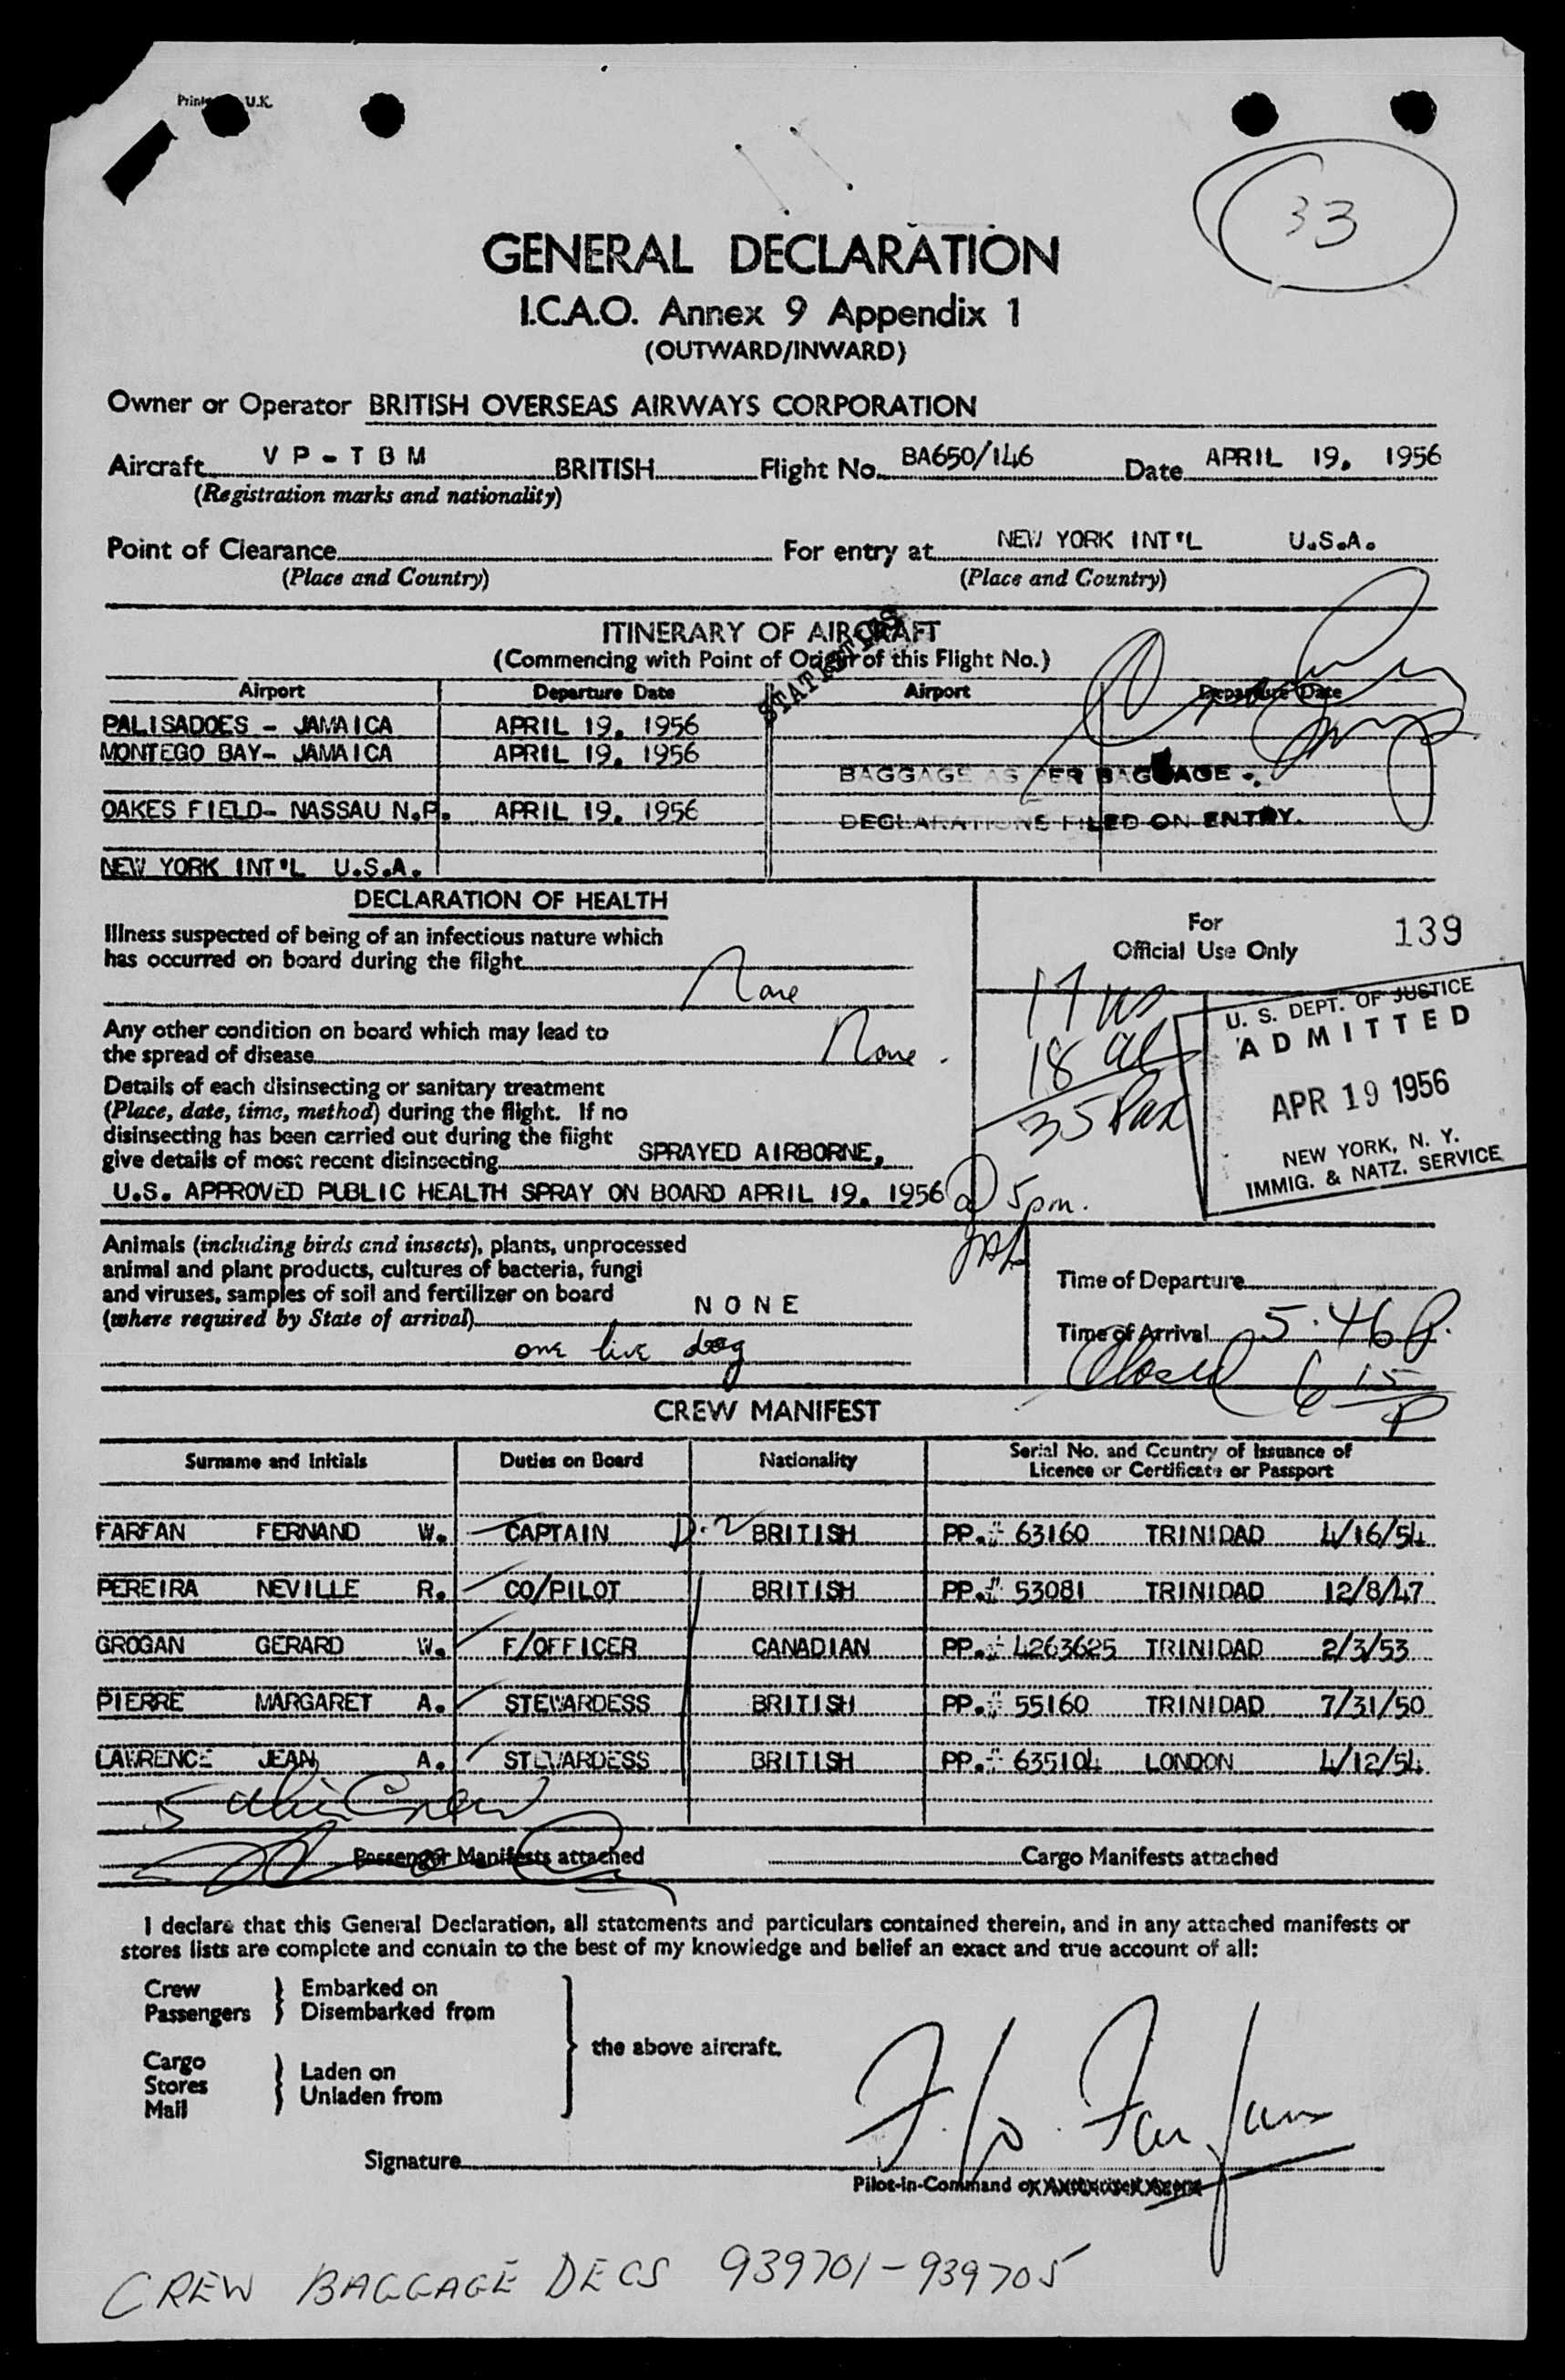 33
GENERAL DECLARATION
I.C.A.O. Annex 9 Appendix 1
(OUTWARD/INWARD)
Owner or Operator BRITISH OVERSEAS AIRWAYS CORPORATION
Aircraft VP-TBM BRITISH Flight No. BA650/146 Date APRIL 19, 1956
(Registration marks and nationality)
Point of Clearance For entry at NEW YORK INT'L U.S.A.
(Place and Country) (Place and Country)
ITINERARY OF AIRCRAFT
(Commencing with Point of Origin of this Flight No.)
STATISTICS
Airport Departure Date Airport Departure Date
PALISADOES - JAMAICA APRIL 19, 1956
MONTEGO BAY- JAMAICA APRIL 19, 1956
BAGGAGE AS PER BAGGAGE
OAKES FIELD- NASSAU N.P. APRIL 19, 1956
DECLARATIONS FILED ON ENTRY.
NEW YORK INT'L U.S.A.
DECLARATION OF HEALTH
For
Official Use Only
139
Illness suspected of being of an infectious nature which
has occurred on board during the flight
None
Any other condition on board which may lead to
the spread of disease None.
17 us
18 al
35 Pax
U. S. DEPT. OF JUSTICE
ADMITTED
APR 19 1956
NEW YORK, N. Y.
IMMIG. & NATZ. SERVICE
Details of each disinsecting or sanitary treatment
(Place, date, time, method) during the flight. If no
disinsecting has been carried out during the flight
give details of most recent disinsecting SPRAYED AIRBORNE,
U.S. APPROVED PUBLIC HEALTH SPRAY ON BOARD APRIL 19, 1956 @ 5pm.
Animals (including birds and insects), plants, unprocessed
animal and plant products, cultures of bacteria, fungi
and viruses, samples of soil and fertilizer on board
(where required by State of arrival) NONE
one live dog
Time of Departure
Time of Arrival 5:46 P.
Closed 6 15 P
CREW MANIFEST
Surname and Initials Duties on Board Nationality Serial No. and Country of Issuance of
Licence or Certificate or Passport
FARFAN FERNAND W. CAPTAIN D-2 BRITISH PP.# 63160 TRINIDAD 4/16/54
PEREIRA NEVILLE R. CO/PILOT BRITISH PP.# 53081 TRINIDAD 12/8/47
GROGAN GERARD W. F/OFFICER CANADIAN PP.# 4263625 TRINIDAD 2/3/53
PIERRE MARGARET A. STEWARDESS BRITISH PP.# 55160 TRINIDAD 7/31/50
LAWRENCE JEAN A. STEWARDESS BRITISH PP.# 635104 LONDON 4/12/54
5 Crew
Passenger Manifests attached Cargo Manifests attached
I declare that this General Declaration, all statements and particulars contained therein, and in any attached manifests or
stores lists are complete and contain to the best of my knowledge and belief an exact and true account of all:
Crew Embarked on
Passengers Disembarked from
the above aircraft.
Cargo
Stores Laden on
Mail Unladen from
Signature
Pilot-in-Command or Authorised Agent
CREW BAGGAGE DECS 939701-939705